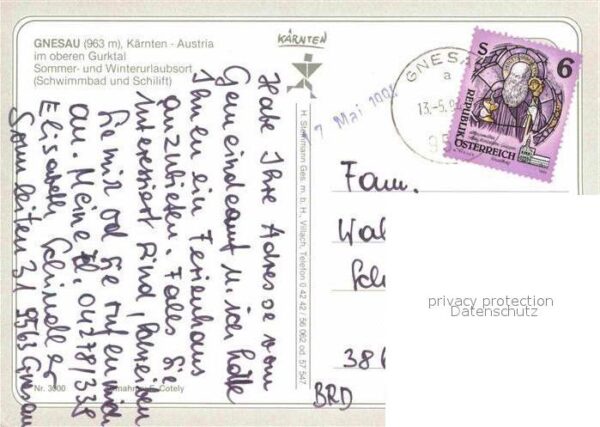 GNESAU (963 m), Kärnten - Austria
im oberen Gurktal
Sommer- und Winterurlaubsort
(Schwimmbad und Schilift)
KÄRNTEN
GNESAU
a
13.-5.9
95
S
6
REPUBLIK
ÖSTERREICH
7 Mai 199
Habe Ihre Adresse vom
Gemeindeamt u. ich hätte
Ihnen ein Ferienhaus
anzubieten. Falls Sie
interessiert sind, schreiben
Sie mir od. Sie rufen mich
an. Meine Tel. 04278/338
Elisabeth
Sonnleiten 31 9563 Gnesau
H. Ges. m. b. H., Villach, Telefon 0 42 42 / 56 062 od. 57 547
Fam.
Wal
Sch
386
BRD
Nr. 3600
privacy protection
Datenschutz